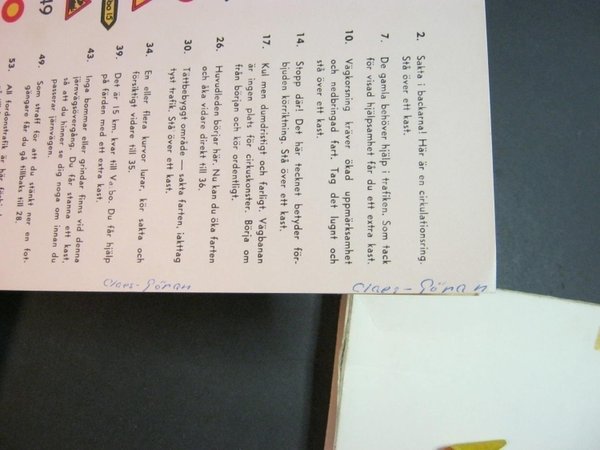 2. Sakta i backarna! Här är en cirkulationsring.
Stå över ett kast.
7. De gamla behöver hjälp i trafiken. Som tack
för visad hjälpsamhet får du ett extra kast.
10. Vägkorsning kräver ökad uppmärksamhet
och nedbringad fart. Tag det lugnt och
stå över ett kast.
14. Stopp där! Det här tecknet betyder för-
bjuden körriktning. Stå över ett kast.
17. Kul men dumdristigt och farligt. Vägbanan
är ingen plats för cirkuskonster. Börja om
från början och kör ordentligt.
26. Huvudleden börjar här. Nu kan du öka farten
och åka vidare direkt till 36.
30. Tättbebyggt område — sakta farten, iakttag
tyst trafik. Stå över ett kast.
34. En eller flera kurvor lurar, kör sakta och
försiktigt vidare till 35.
39. Det är 15 km. kvar till Vabo. Du får hjälp
på färden med ett extra kast.
43. Inga bommar eller grindar finns vid denna
järnvägsövergång. Du får stanna ett kast.
så att du hinner se dig noga om innan du
passerar järnvägen.
49. Som straff för att du stänkt ner en fot-
gängare får du gå tillbaks till 28.
53. All fordonstrafik är här
bo 15
49
Claes-Göran
Claes-Göran